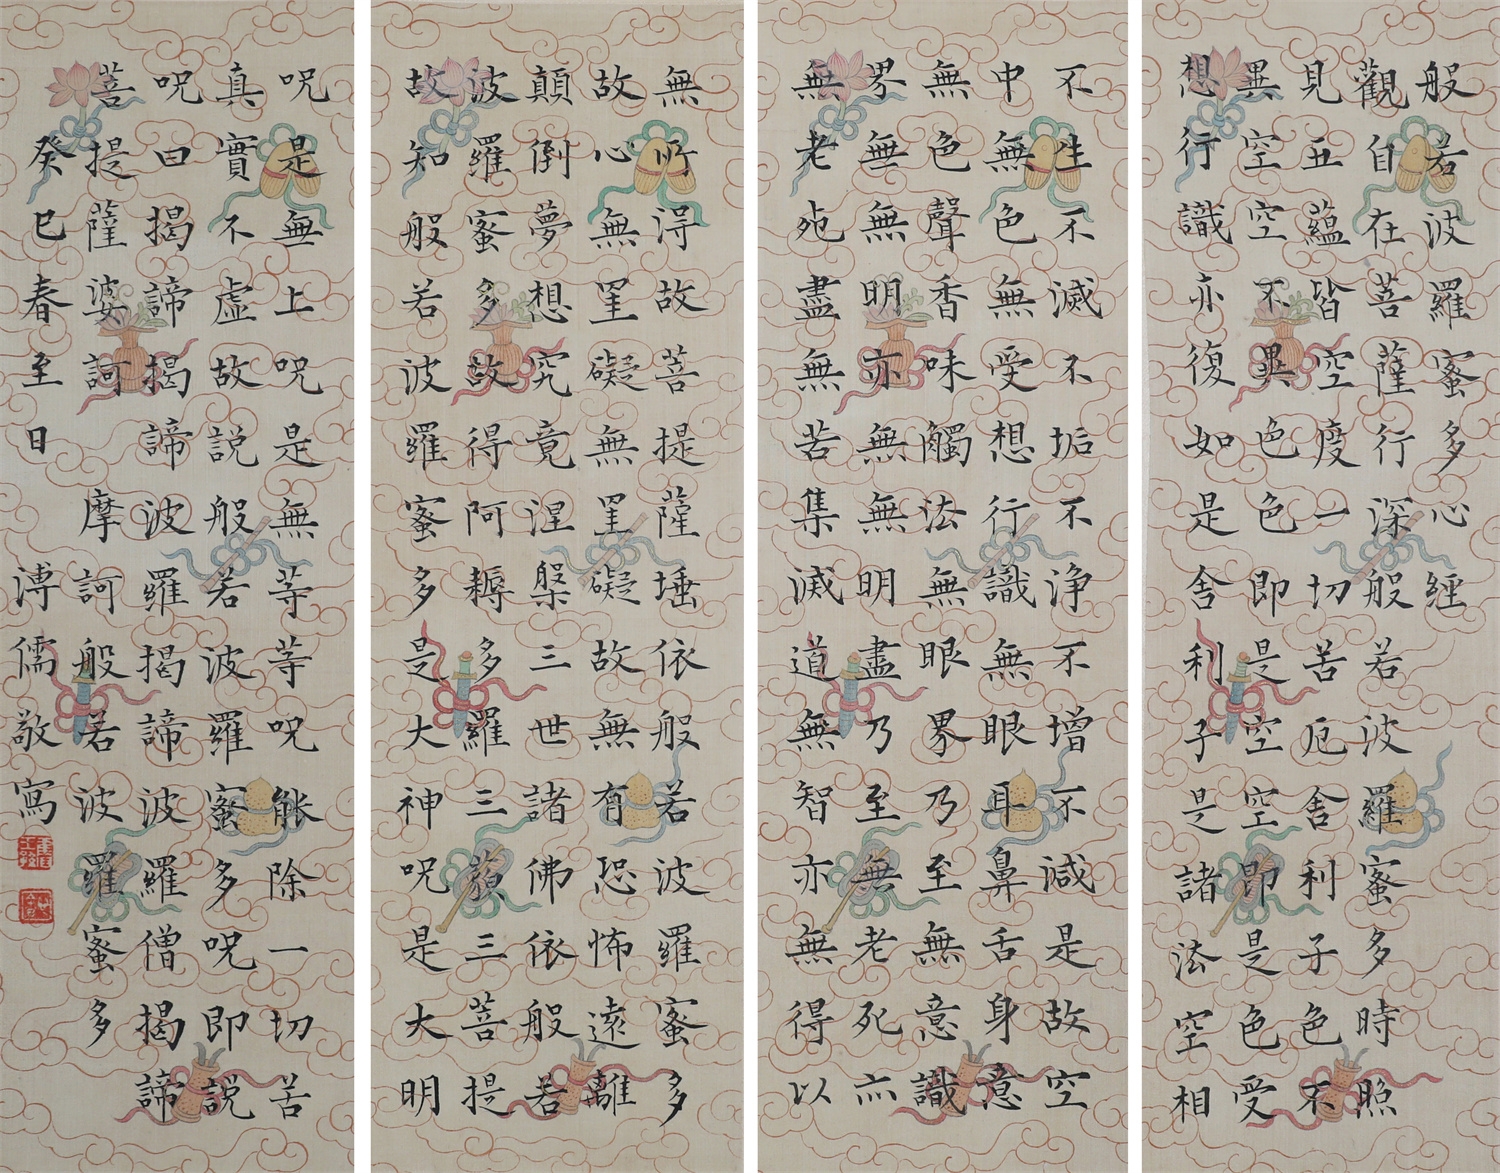 般若波羅蜜多心經
觀自在菩薩行深般若波羅蜜多時照
見五蘊皆空度一切苦厄舍利子色不
異空空不異色色即是空空即是色受
想行識亦復如是舍利子是諸法空相
不生不滅不垢不淨不增不減是故空
中無色無受想行識無眼耳鼻舌身意
無色聲香味觸法無眼界乃至無意識
界無無明亦無無明盡乃至無老死亦
無老死盡無苦集滅道無智亦無得以
無所得故菩提薩埵依般若波羅蜜多
故心無罣礙無罣礙故無有恐怖遠離
顛倒夢想究竟涅槃三世諸佛依般若
波羅蜜多故得阿耨多羅三藐三菩提
故知般若波羅蜜多是大神呪是大明
呪是無上呪是無等等呪能除一切苦
真實不虛故說般若波羅蜜多呪即說
呪曰揭諦揭諦波羅揭諦波羅僧揭諦
菩提薩婆訶 摩訶般若波羅蜜多
癸巳春至日
溥儒敬寫